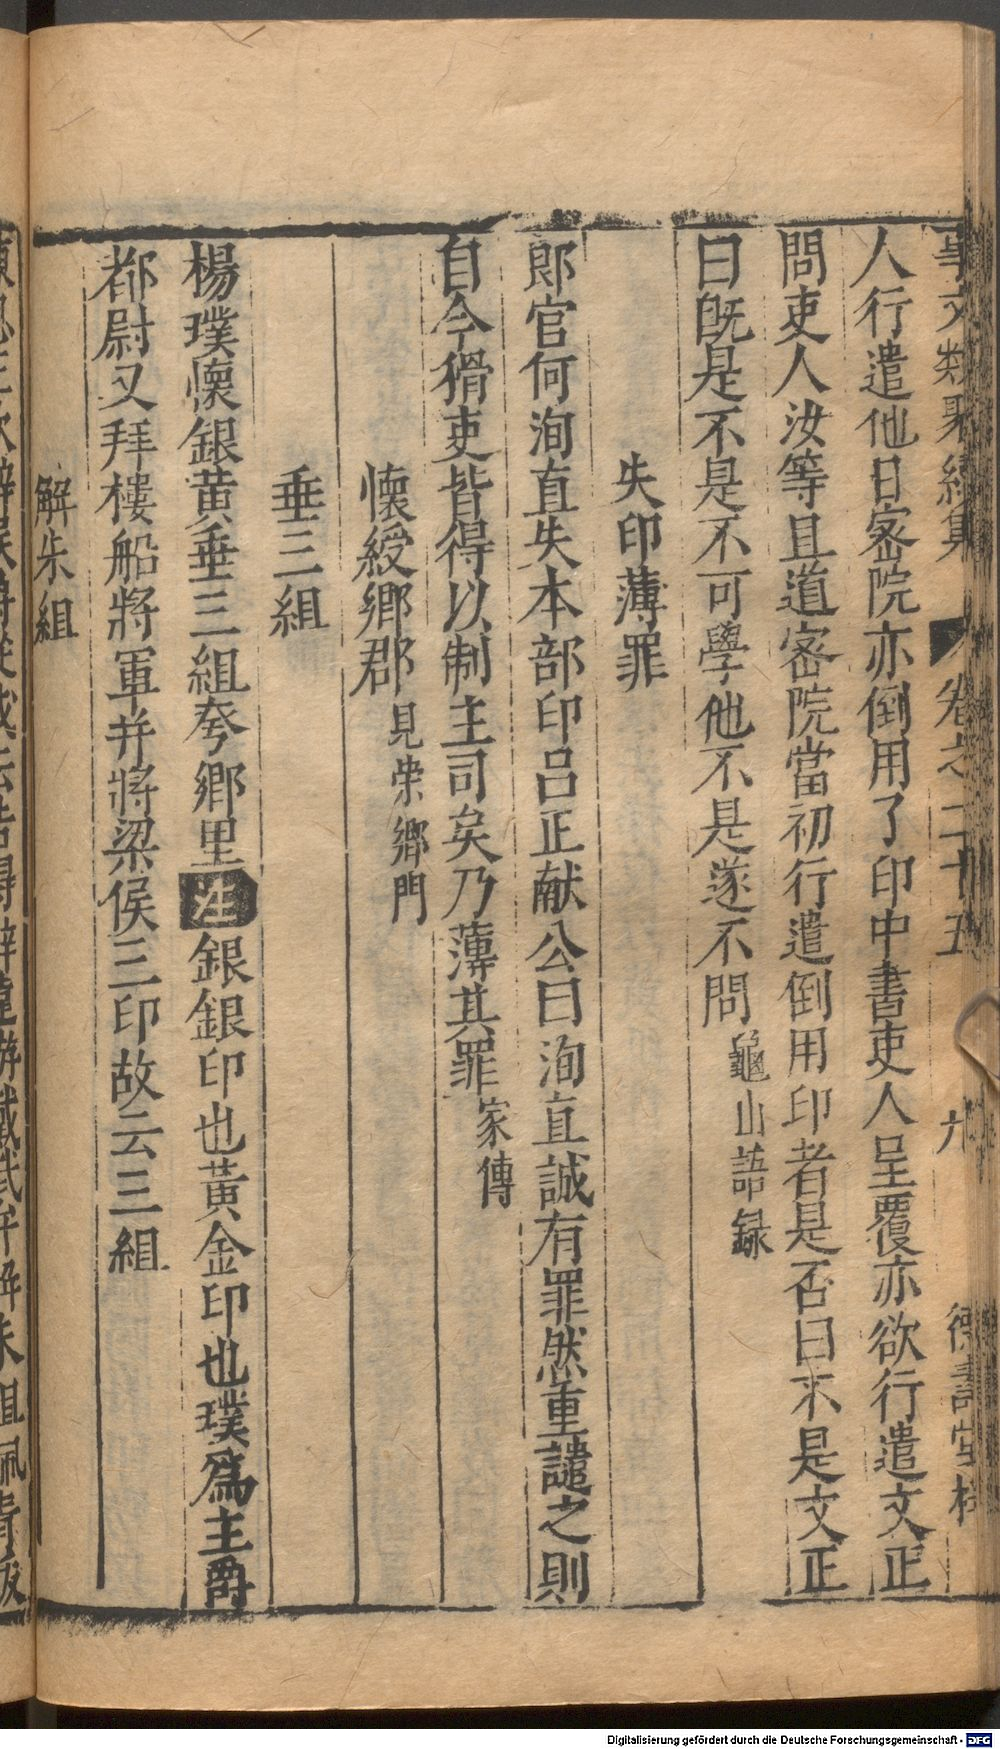 事文類聚續集 卷之二十五 九 德壽堂梓
人行遣他日密院亦倒用了印中書吏人呈覆亦欲行遣文正
問吏人汝等且道密院當初行遣倒用印者是否曰不是文正
曰旣是不是不可學他不是遂不問龜山語録
失印薄罪
郎官何洵直失本部印呂正献公曰洵直誠有罪然重譴之則
自今猾吏皆得以制主司矣乃薄其罪家傳
懷綬鄉郡見榮鄉門
垂三組
楊璞懷銀黃垂三組夸鄉里注銀銀印也黃金印也璞爲主爵
都尉又拜樓船將軍并將梁侯三印故云三組
解朱組
Digitalisierung gefördert durch die Deutsche Forschungsgemeinschaft - DFG